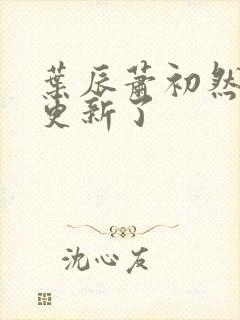 葉辰蕭初然
更新了
沈心友